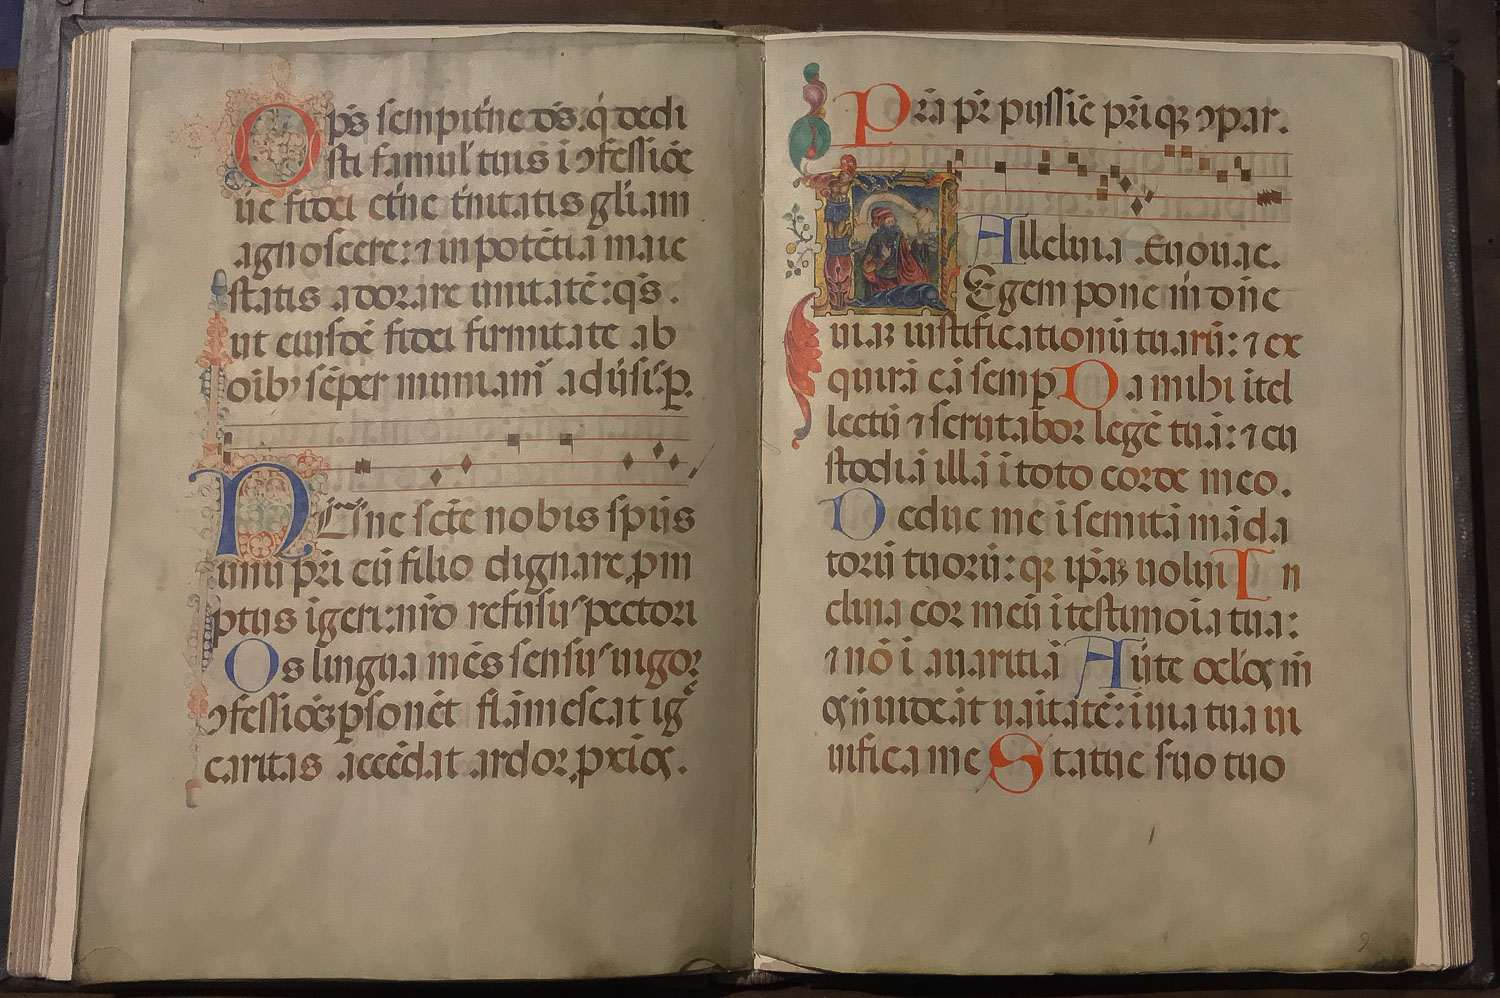 Op̄s sempit̓ne d̄s. q̓ dedi
sti famul̓ tuis i ꝯfessiōe
ue fidei et̓ne t̓nitatis gl̓iam
agnoscere: ⁊ in potētia maie
statis adorare unitatē: q̄s.
ut eiusdē fidei firmitate ab
oīb; sēper muniam̄ adūsis. p.
Nūc scē te nobis sp̄us
unū pr̄i cū filio dignare pm
ptus īgeri: nr̄o refusus pectori
Os lingua mēs sensus uigor
ꝯfessiōeꝫ ꝑsonēt flāmescat ig̓
caritas accēdat ardor ꝓxīos.
Pr̄a pr̄ pijssie pr̄i qꝫ ꝯpar.
Alleluia. Euouae.
Legem pone m̄ dn̄e
uiaꝝ iustificationū tuarū: ⁊ ex
quirā eā semp Da mihi ītel
lectū ⁊ scrutabor legē tuā: ⁊ cu
stodiā illā ī toto corde meo.
Deduc me ī semitā māda
torū tuorū: qꝛ ip̄aꝫ uolui In
clina cor meū ī testimōia tua:
⁊ nō ī auaritiā Auīte ocl̓os m̄
os n̄ uideāt uāitatē: ī uia tua ui
uifica me Statue suo tuo
9